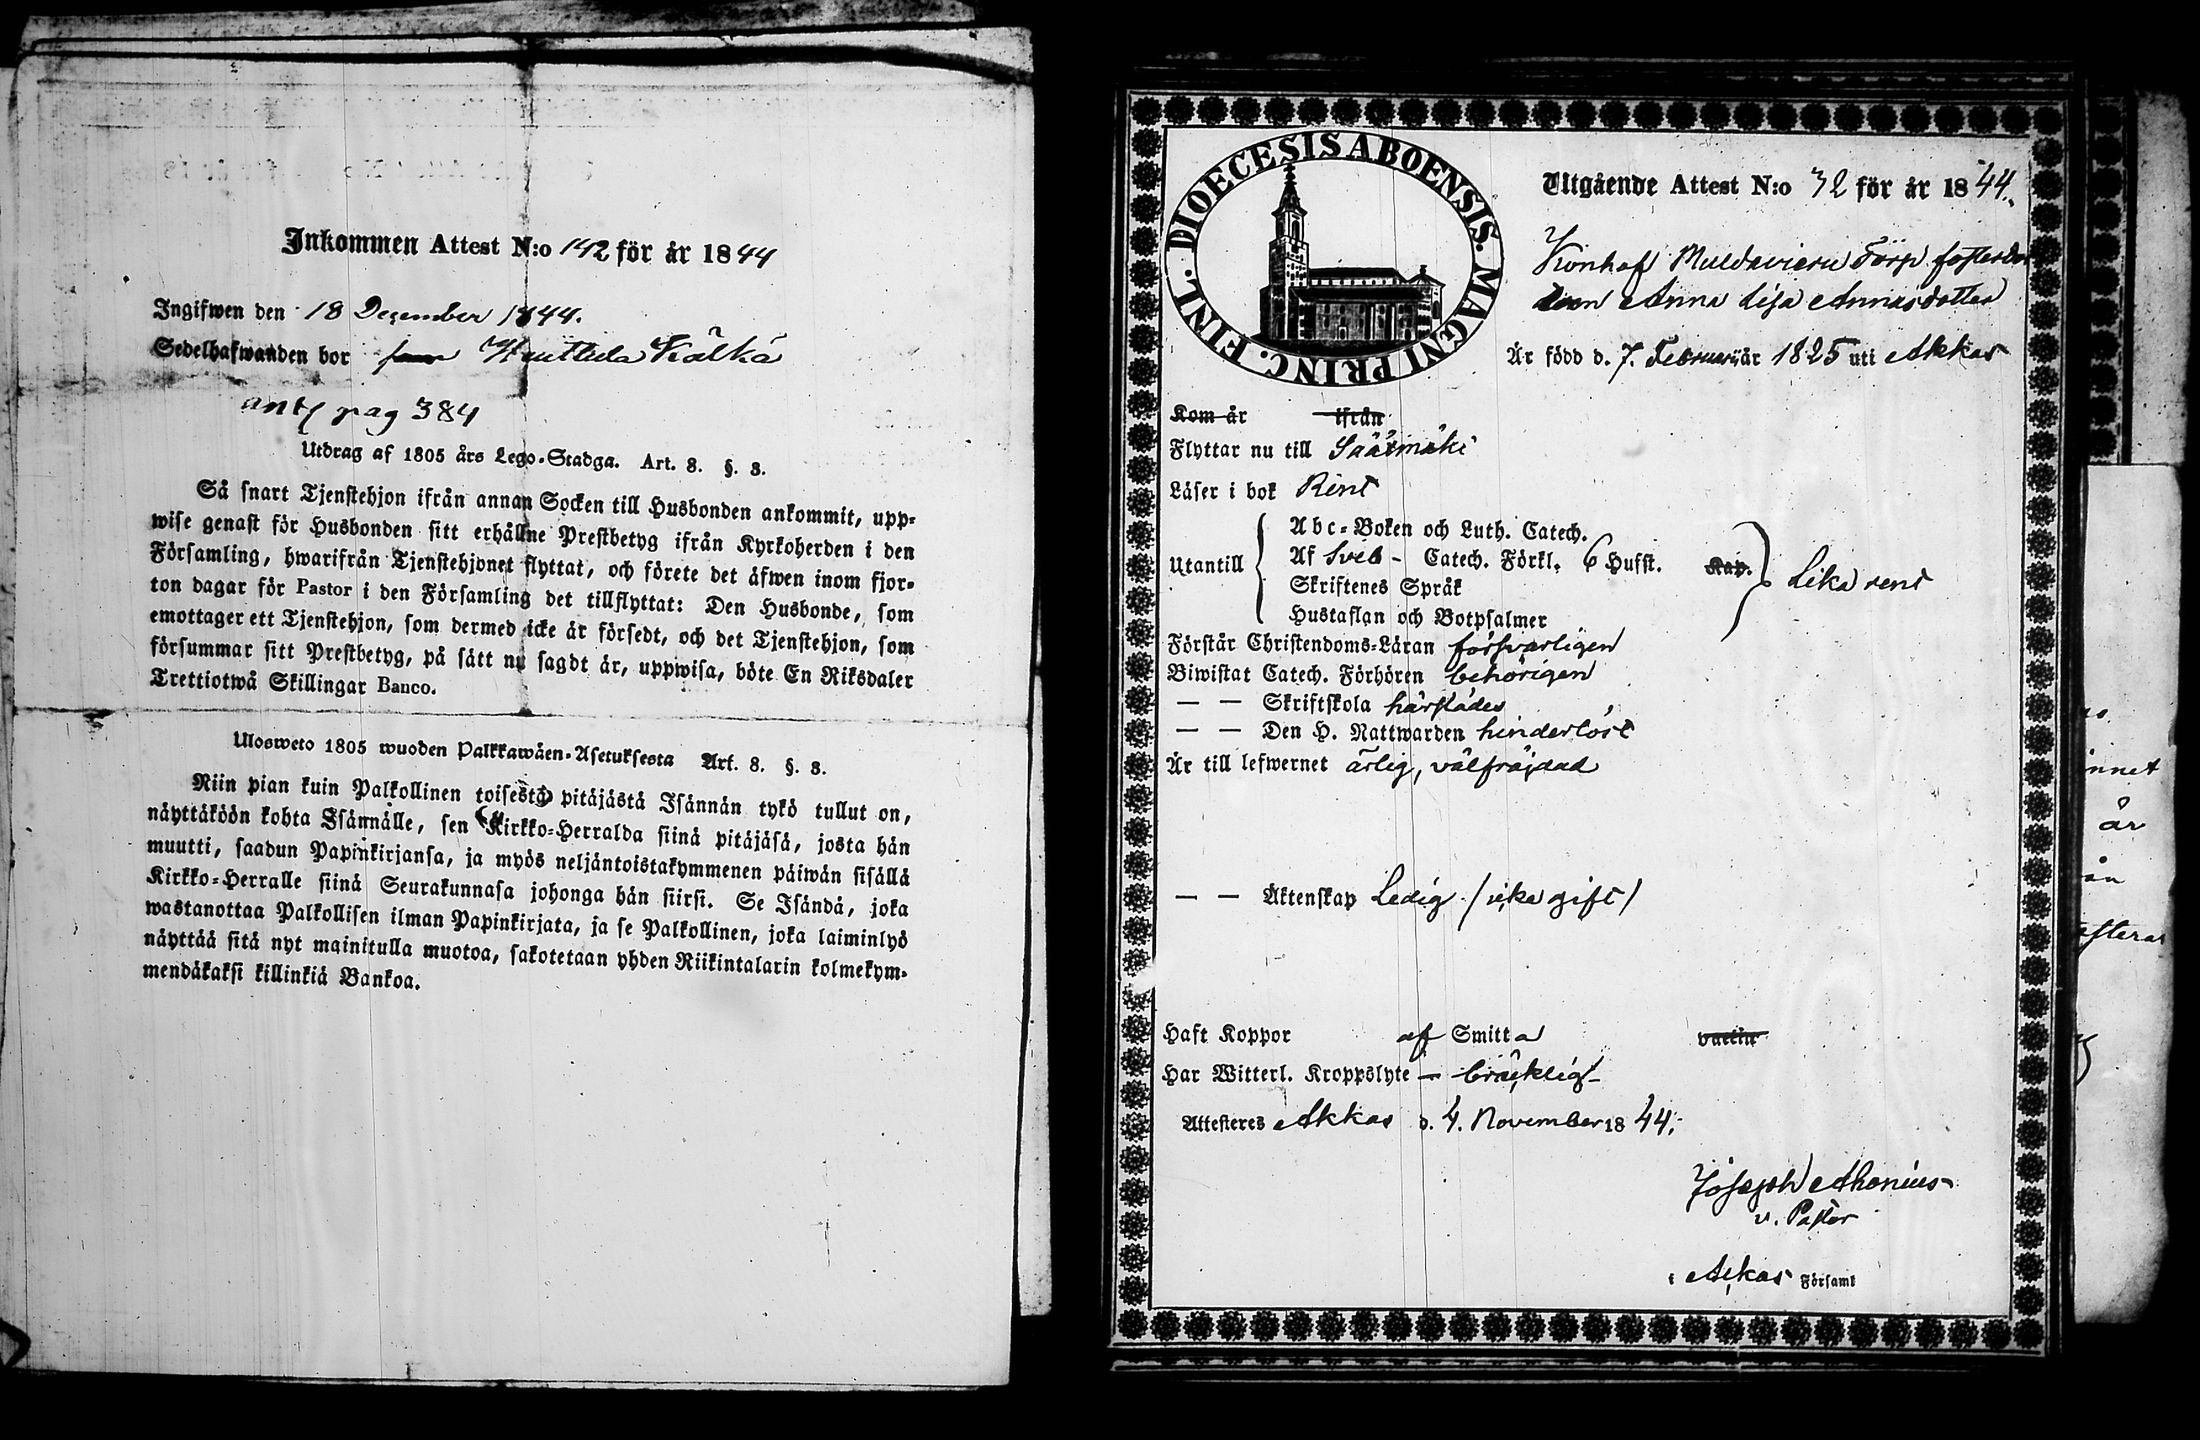 Inkommen Attest N:o 142 för år 1844
Ingifwen den 18 December 1844.
Sedelhafwanden bor Kälkä
ant pag 384
Utdrag af 1805 års Lego-Stadga. Art. 8. §. 3.
Så snart Tjenstehjon ifrån annan Socken till Husbonden ankommit, upp-
wise genast för Husbonden sitt erhållne Prestbetyg ifrån Kyrkoherden i den
Församling, hwarifrån Tjenstehjonet flyttat, och förete det äfwen inom fjor-
ton dagar för Pastor i den Församling det tillflyttat: Den Husbonde, som
emottager ett Tjenstehjon, som dermed icke är försedt, och det Tjenstehjon, som
försummar sitt Prestbetyg, på sätt nu sagdt är, uppwisa, böte En Riksdaler
Trettiotwå Skillingar Banco.
Ulosweto 1805 wuoden Palkkawäen-Asetuksesta Art. 8. §. 3.
Niin pian kuin Palkollinen toisesta pitäjästä Isännän tykö tullut on,
näyttäköön kohta Isännälle, sen Kirkko-Herralda siinä pitäjäsä, josta hän
muutti, saadun Papinkirjansa, ja myös neljäntoistakymmenen päiwän sisällä
Kirkko-Herralle siinä Seurakunnasa johonga hän siirsi. Se Isändä, joka
wastanottaa Palkollisen ilman Papinkirjata, ja se Palkollinen, joka laiminlyö
näyttää sitä nyt mainitulla muotoa, sakotetaan yhden Riikintalarin kolmekym-
mendäkaksi killinkiä Bankoa.
DIOECESIS ABOENSIS. MAGNI PRINC. FINL.
Utgående Attest N:o 32 för år 1844.
Torp
Anna Lisa Annasdotter
Är född d. 7. Februarii år 1825 uti Akkas
Kom år ifrån
Flyttar nu till Sääxmäki
Läser i bok Rent
Utantill
Abc-Boken och Luth. Catech.
Af Sveb - Catech. Förkl. 6 Hufst. Kap.
Skriftenes Språk
Hustaflan och Botpsalmer
Lika rent
Förstår Christendoms-Läran försvarligen
Biwistat Catech. Förhören behörigen
— — Skriftskola härstädes
— — Den H. Nattwarden hinderlöst
Är till lefwernet ärlig, välfräjdad
— — Äktenskap Ledig / icke gift /
Haft Koppor af Smitta vaccin
Har Witterl. Kroppslyte — bräcklig -
Attesteres Akkas d. 4. November 1844.
Joseph
v. Pastor
i Ackas Församl